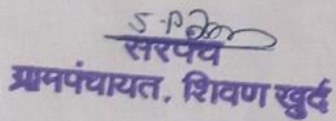 सरपंच
ग्रामपंचायत, शिवण खुर्द